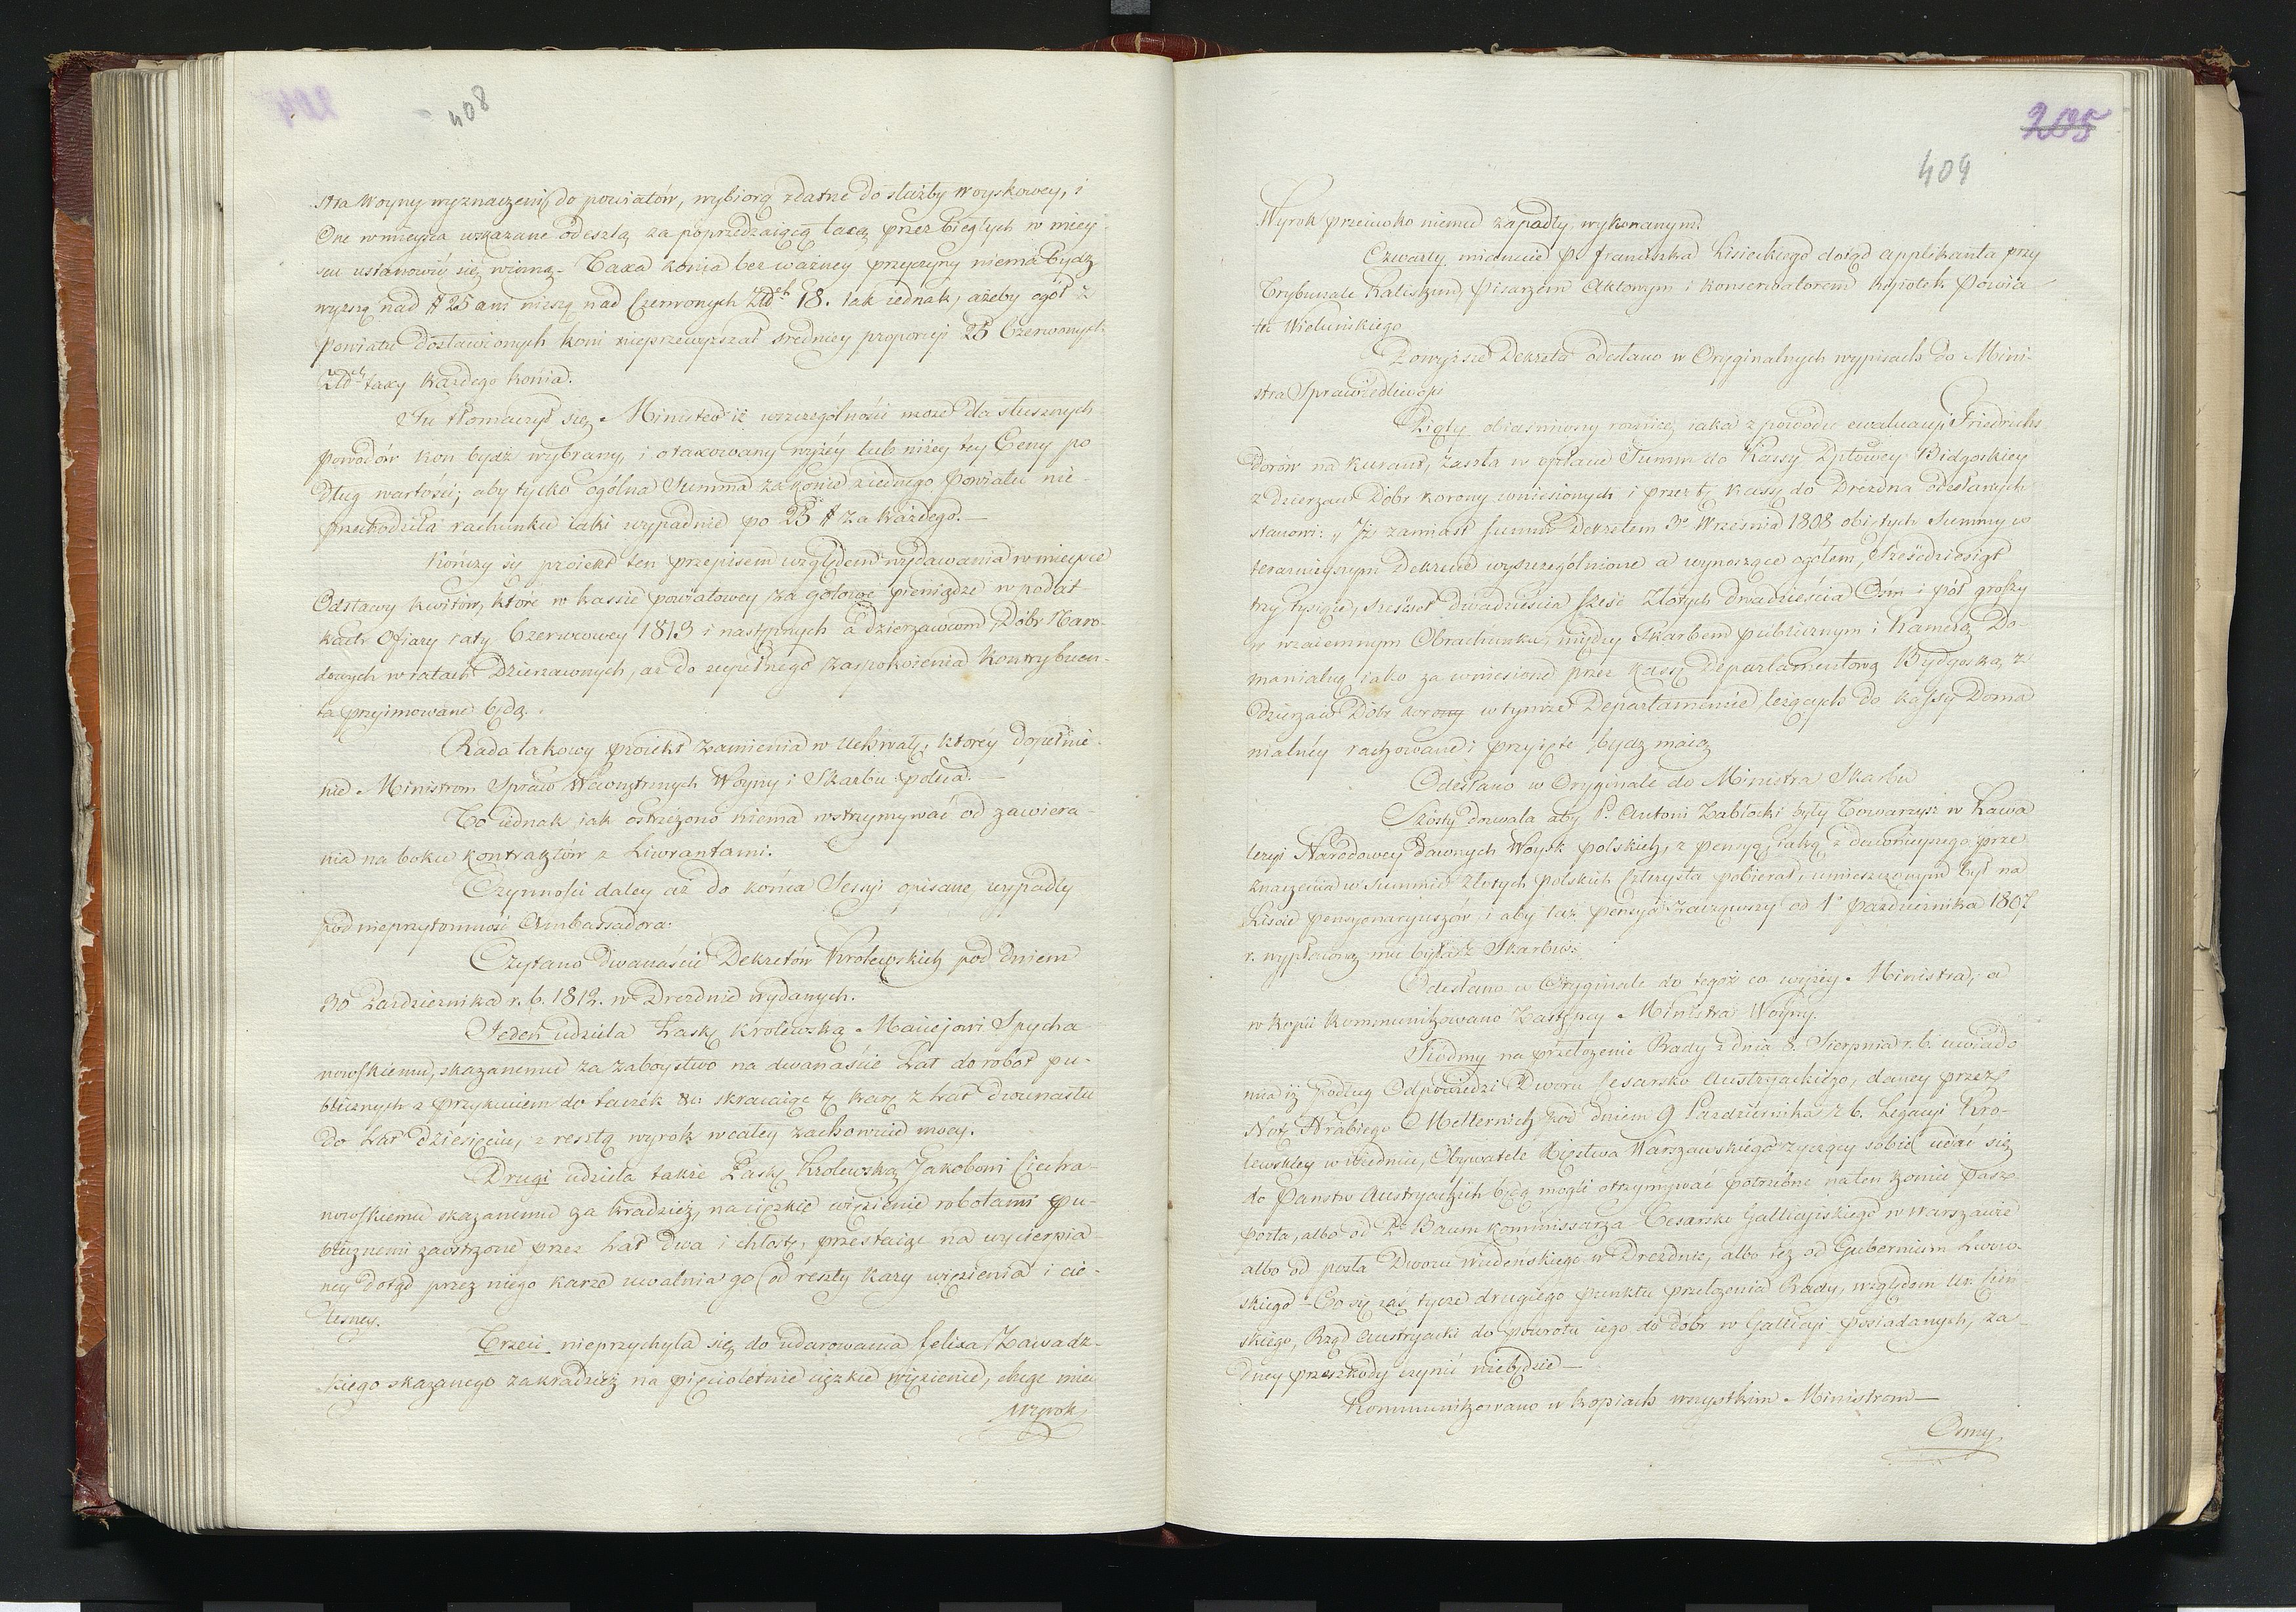 408
stra Woyny wyznaczeni, do powiatów, wybiorą zdatne do służby woyskowey, i
One w mieysca wskazane odeszlą za poprzedzaiącą taxą przez biegłych w miey-
scu ustanowić się winną. Taxa konia bez ważney przyczyny niema bydz
wyższą nad # 25 ani niższą nad Czerwonych Złłch 18. tak iednak, ażeby ogół z
powiatu dostawionych koni nieprzewyższał średniey proporcyi 25 Czerwonych
Złłch taxy każdego konia.
Tu tłomaczył się Minister iż wszczególności może dla słusznych
powodów koń bydź wybrany, i otaxowany wyżéy lub niżéy téy Ceny po
dług wartości; aby tylko ogólna Summa za konie z iednego powiatu nie-
przechodziła rachunku iaki wypadnie po 25 # za każdego.—
Kończy się proiekt ten przepisem względem wydawania w mieysce
Odstawy kwitów, które w kassie powiatowey za gotowe pieniądze w podat-
kach Ofiary raty Czerwcowey 1813 i następnych a dzierzawcom Dóbr Naro-
dowych w ratach Dzierzawnych, aż do zupełnego zaspokoienia Kontrybuen-
ta przyimowane będą.
Rada takowy proiekt zamienia w Uchwałę, którey dopełnie-
nie Ministrom Spraw Wewnętrznych Woyny i Skarbu poleca.—
To iednak iak ostrzeżono niema wstrzymywać od zawiera-
nia na boku kontraktów z Liwrantami.
Czynności daley aż do końca Sessyi opisane wypadły
pod nieprzytomność Ambassadora:
Czytano dwanaście Dekretów Królewskich pod dniem
30 Pazdziernika r. b. 1812. w Dreznie wydanych.
Jeden udziela Łaskę Królewską Maciejowi Spycha
nowskiemu, skazanemu za zaboystwo na dwanaście Lat do robot pu-
blicznych z przykuciem do taczek skracaiąc tę karę z Lat dwunastu
do Lat dziesięciu, z resztą wyrok w całey zachowuie mocy.
Drugi udziela także Łaskę Królewską Jakobowi Ciechra-
nowskiemu skazanemu za kradzież, na ciężkie więzienie robotami pu-
blicznemi zaostrzone przez Lat dwa i chłostę, przestaiąc na wycierpia-
ney dotąd przez niego karze uwalnia go od reszty kary więzienia i cie-
lesney.
Trzeci nieprzychyla się do udarowania Felixa Zawadz-
kiego skazanego za kradzież na pięcioletnie ciężkie więzienie, chcąc mieć
Wyrok
205
409
Wyrok przeciwko niemu zapadły, wykonanym.
Czwarty mianuie P. Franciszka Lisieckiego dotąd applikanta przy
Trybunale Kaliskim, pisarzem Aktowym i Konserwatorem hypotek Powia
tu Wieluńskiego
Powyższe Dekreta odesłano w Oryginalnych wypisach do Mini-
stra Sprawiedliwości
Piąty obiaśniaiący różnicę iaka z powodu ewaluacyi Friedrichs
dorów na kurant, zaszła w opłacie Summ do Kassy Dptowey Bidgoskiey
z Dzierzaw Dóbr korony wniesionych i przez tę kassę do Drezna odesłanych
stanowi: „ Iż zamiast summ Dekretem 3o Września 1808 obiętych Summy w
teraznieyszym Dekrecie wyszczególnione a wynoszące ogółem, Sześćdziesiąt
trzy tysiące, sześćset dwadzieścia sześć Złotych dwadzieścia Ośm i pół groszy
w wzaiemnym Obrachunku, między Skarbem publicznym i Kamerą Do-
manialną iako za wniesione przez Kassę Departamentową Bydgoską z
Dzierzaw Dóbr korony w tymże Departamencie leżących do kassy Doma
nialnéy rachowane i przyięte bydz maią
Odesłano w Oryginale do Ministra Skarbu
Szósty dozwala aby P. Antoni Zabłocki były Towarzysz w Kawa
leryi Narodowey dawnych Woysk polskich, z pensyą iaką z dawnieyszego prze
znaczenia w summie Złotych polskich Czterysta pobierał, umieszczonym był na
Liście pensyonaryuszów, i aby taż pensya zacząwszy od 1o Pazdziernika 1807
r. wypłaconą mu była z Skarbu.
Odesłano w Oryginale do tegoż co wyżéy Ministra, a
w kopii Kommunikowano Zastępcy Ministra Woyny.
Siódmy na przełożenie Rady z dnia 8. Sierpnia r. b. uwiado
mia iż podług Odpowiedzi Dworu Cesarsko Austryackiego, daney przez
Notę Hrabiego Metternich pod dniem 9 Pazdziernika r. b. Legacyi Kró-
lewskiey w Wiedniu, Obywatele Xięstwa Warszawskiego życzący sobie udać się
do Państw Austryackich będą mogli otrzymywać potrzebne na ten koniec pasz
porta, albo od P. Baum Kommissarza Cesarsko Gallicyiskiego w Warszawie
albo od posła Dworu wiedeńskiego w Dreznie, albo też od Gubernium Lwow-
skiego.— Co się zaś tycze drugiego punktu przełożenia Rady, względem
skiego, Rząd Austryacki do powrotu iego do dóbr w Gallicyi posiadanych, ża-
dney przeszkody czynić niebędzie—
Kommunikowano w kopiach wszystkim Ministrom—
Osmy